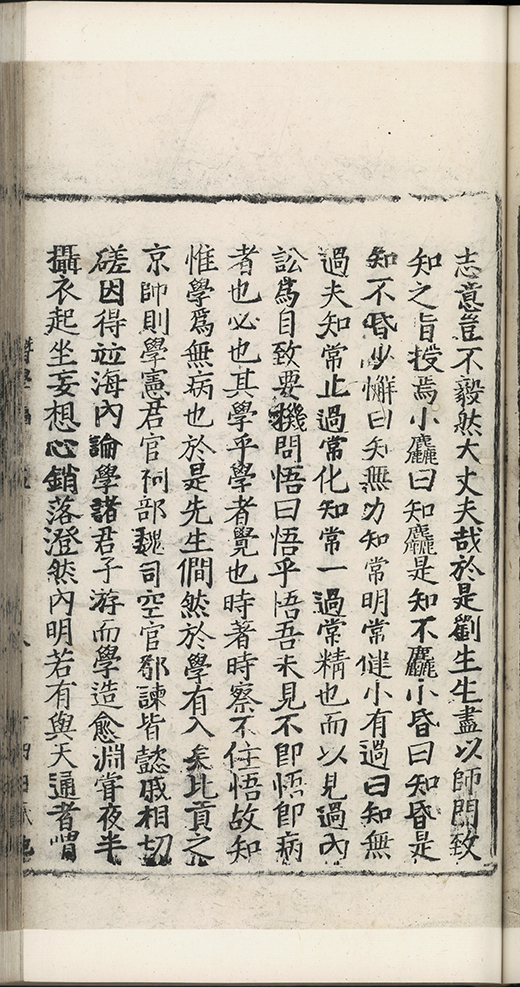 志意豈不毅然大丈夫哉於是劉生生盡以師門致
知之旨授焉小麤曰知麤是知不麤小昏曰知昏是
知不昏少懈曰矢無力知常明常健小有過曰知無
過夫知常止過常化知常一過常精也而以見過內
訟為自致要機問悟曰悟乎悟吾未見不即悟即病
者也必也其學乎學者覺也時著時察不住悟故知
惟學爲無病也於是先生僴然於學有入矣比貢之
京師則學憲君官祠部魏司空官鄒諫皆懿戚相切
磋因得竝海內論學諸君子游而學造愈淵甞夜半
攝衣起坐妄想心銷落澄然內明若有與天通者喟